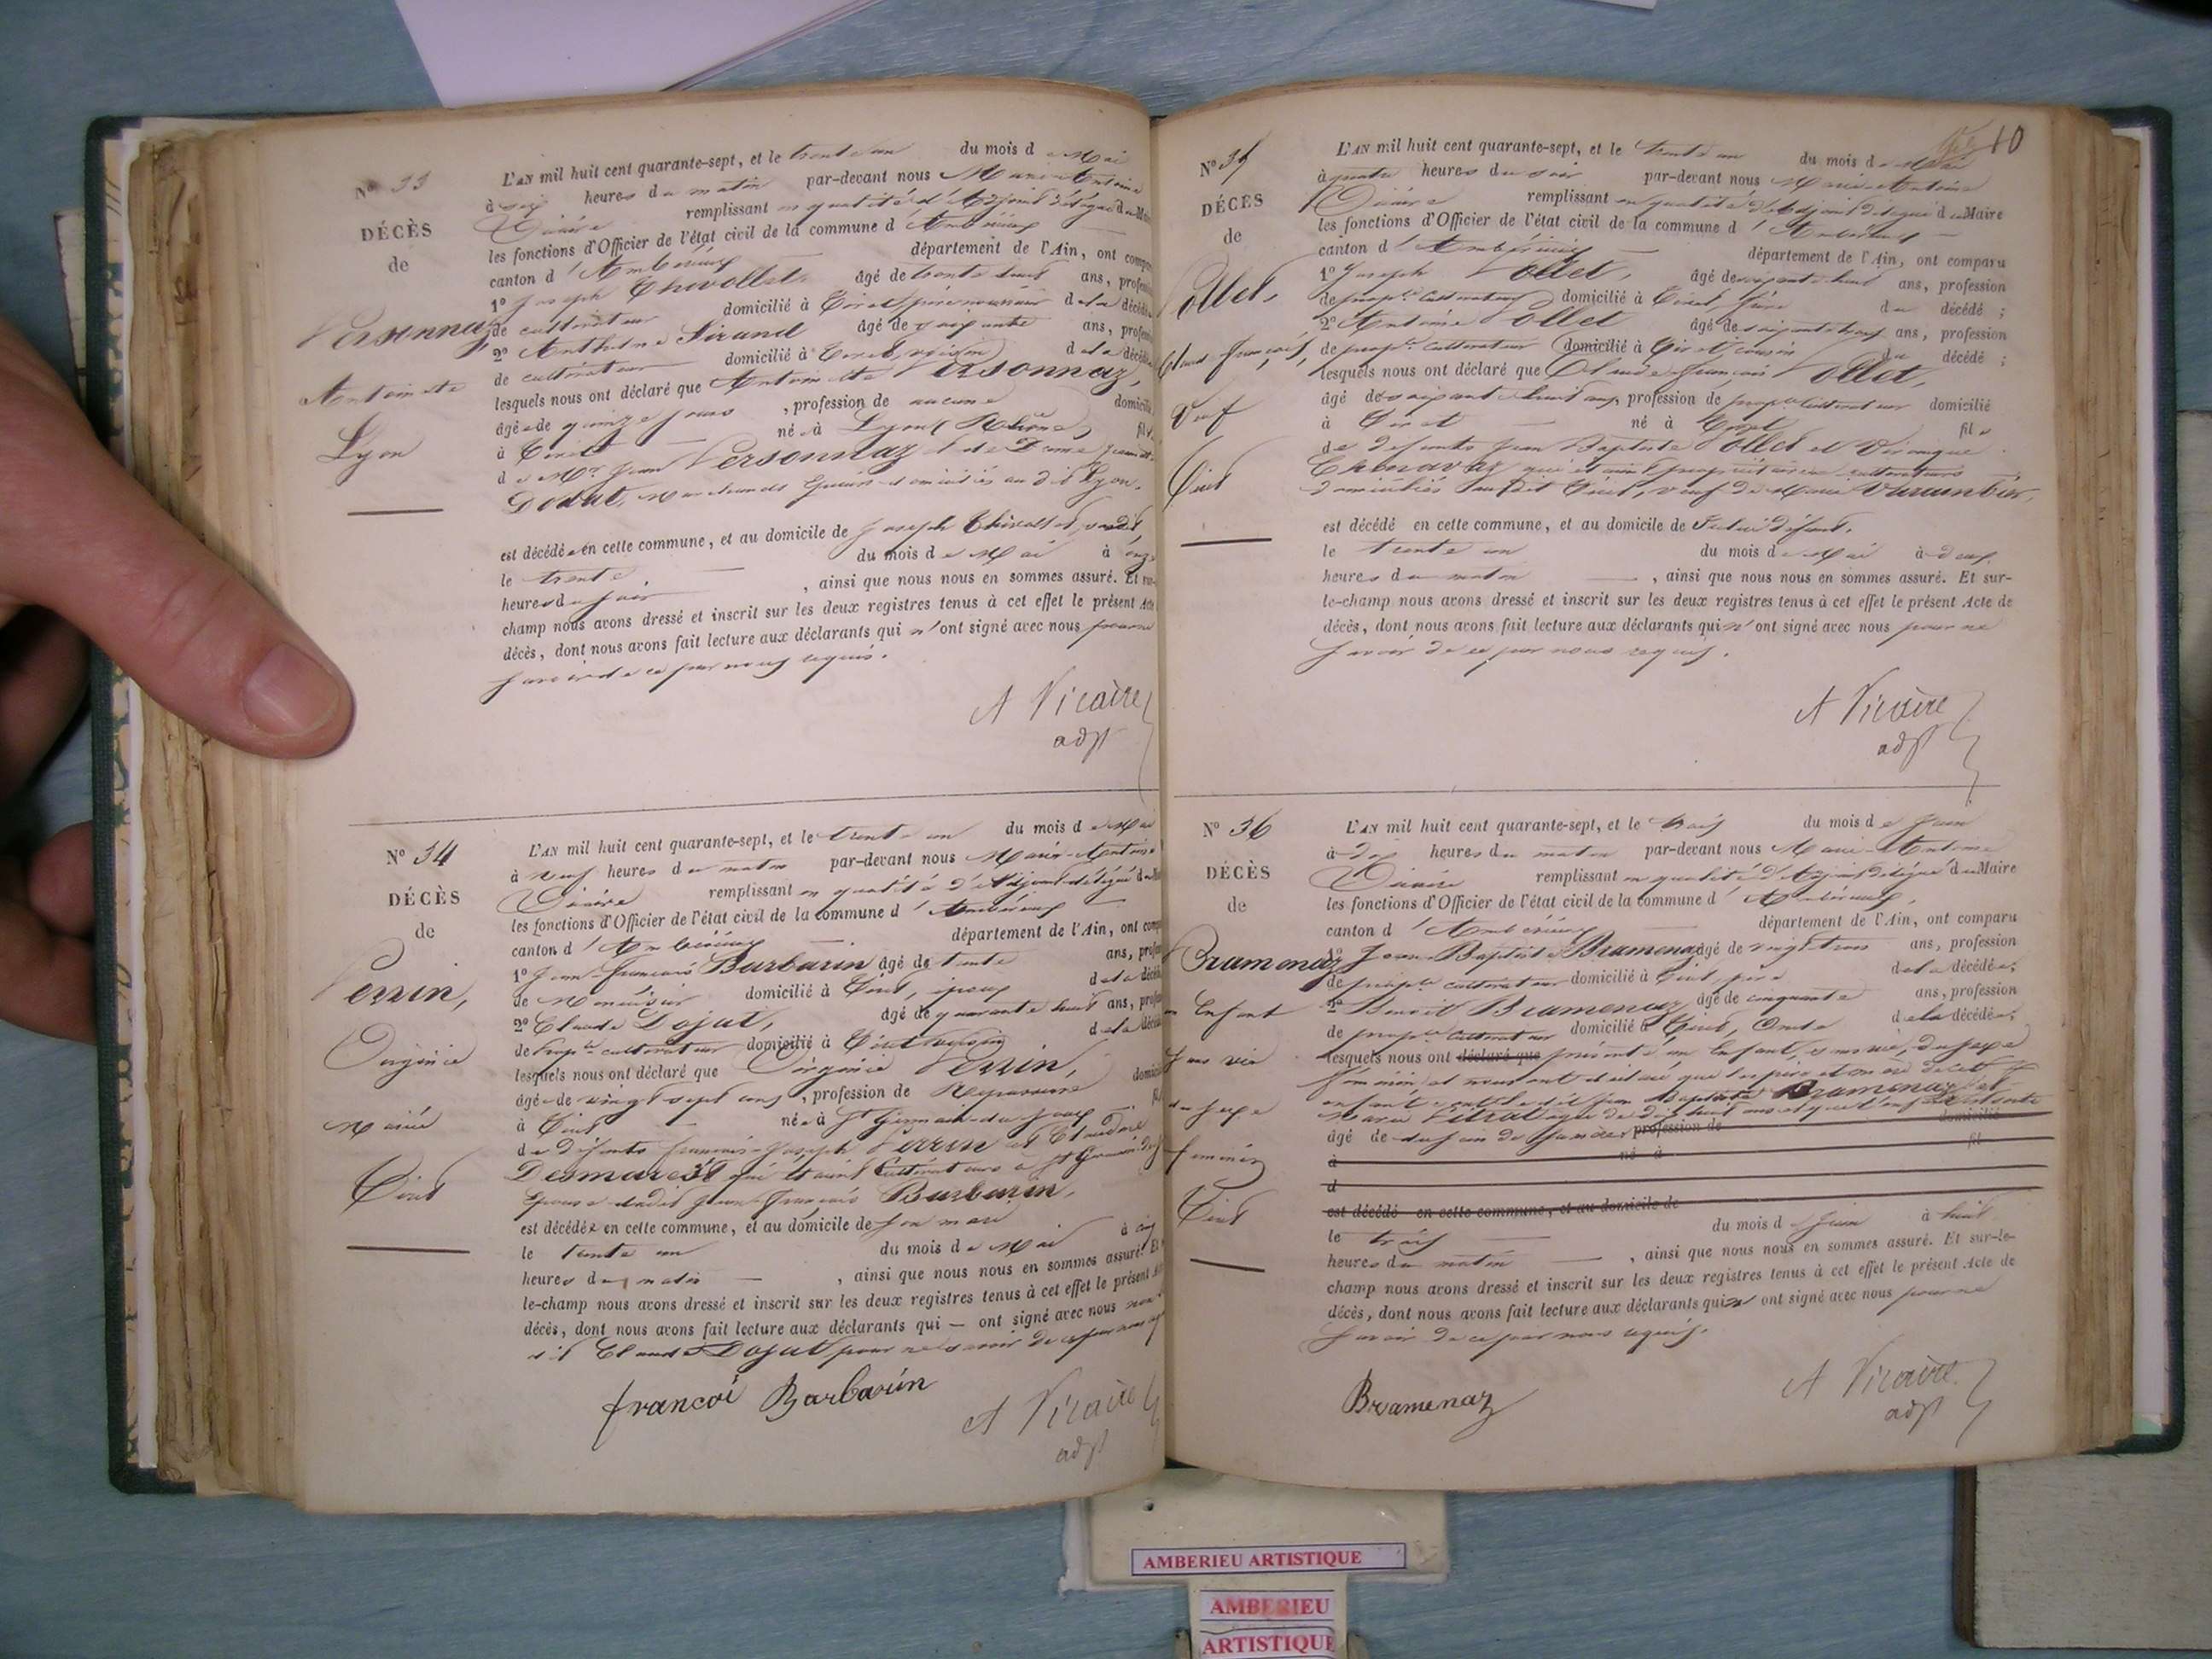 N° 33
DÉCÈS
de
Versonnaz
Antoinette
Lyon
L'AN mil huit cent quarante-sept, et le trente un du mois de Mai
à six heures du matin par-devant nous Marie Antoine
Vicaire remplissant en qualité d'Adjoint délégué du Maire
les fonctions d'Officier de l'état civil de la commune d'Ambérieux
canton d'Ambérieux département de l'Ain, ont compa
1° Joseph Thevollet, âgé de trente huit ans, profes
de cultivateur domicilié à Tiret, père nourricier de la décédé
2° Anthelme Sirand âgé de soixante ans, profes
de cultivateur domicilié à Tiret, voisin de la décédé
lesquels nous ont déclaré que Antoinette Versonnaz,
âgée de quinze jours, profession de aucune domicili
à Tiret née à Lyon (Rhône) fille
de Mr Jean Versonnaz et de Dame
Dodat, Marchands Epiciers domiciliés au dit Lyon.
est décédée en cette commune, et au domicile de Joseph Thevollet, susdit,
le trente du mois de Mai à onze
heures du soir, ainsi que nous nous en sommes assuré. Et sur-
champ nous avons dressé et inscrit sur les deux registres tenus à cet effet le présent Acte
décès, dont nous avons fait lecture aux déclarants qui n'ont signé avec nous pour ne
savoir de ce par nous requis.
A Vicaire
adjt
N° 34
DÉCÈS
de
Perrin,
Virginie
Mariée
Tiret
L'AN mil huit cent quarante-sept, et le trente un du mois de Mai
à neuf heures du matin par-devant nous Marie-Antoine
Vicaire remplissant en qualité d'Adjoint délégué du Mai
les fonctions d'Officier de l'état civil de la commune d'Ambérieux
canton d'Ambérieux département de l'Ain, ont comp
1° Jean-François Barbarin âgé de trente ans, profes
de Menuisier domicilié à Tiret, époux de la décédé
2° Claude Dojat, âgé de quarante huit ans, profes
de Prop.re cultivateur domicilié à Tiret, voisin de la décédé
lesquels nous ont déclaré que Virginie Perrin,
âgée de vingt sept ans, profession de Repasseuse domicili
à Tiret née à St Germain-de-Joux fil
de défunts François-Joseph Perrin et Claudine
Desmarest qui étaient Cultivateurs à St Germain de J
Epouse dudit Jean-François Barbarin,
est décédée en cette commune, et au domicile de son mari
le trente un du mois de Mai à cinq
heures du matin, ainsi que nous nous en sommes assuré. Et
le-champ nous avons dressé et inscrit sur les deux registres tenus à cet effet le présent
décès, dont nous avons fait lecture aux déclarants qui — ont signé avec nous non le
dit Claude Dojat pour ne savoir de ce par nous
françoi Barbarin
A Vicaire
adjt
10
N° 35
DÉCÈS
de
Vollet,
Claude François,
Veuf
Tiret
L'AN mil huit cent quarante-sept, et le trente un du mois de Mai
à quatre heures du soir par-devant nous Marie-Antoine
Vicaire remplissant en qualité d'Adjoint délégué du Maire
les fonctions d'Officier de l'état civil de la commune d'Ambérieux
canton d'Ambérieux département de l'Ain, ont comparu
1° Joseph Vollet, âgé de ans, profession
de prop.re cultivateur domicilié à Tiret, frère du décédé ;
2° Antoine Vollet âgé de ans, profession
de prop.re cultivateur domicilié à Tiret, cousin du décédé ;
lesquels nous ont déclaré que Claude François Vollet,
âgé de soixante huit ans, profession de prop.re cultivateur domicilié
à Tiret né à Tiret fils
de défunts Jean Baptiste Vollet et Véronique
Chenavaz qui étaient propriétaires cultivateurs
domiciliés susdit Tiret, veuf de Marie
est décédé en cette commune, et au domicile de défunt,
le trente un du mois de Mai à deux
heures du matin, ainsi que nous nous en sommes assuré. Et sur-
le-champ nous avons dressé et inscrit sur les deux registres tenus à cet effet le présent Acte de
décès, dont nous avons fait lecture aux déclarants qui n'ont signé avec nous pour ne
savoir de ce par nous requis.
A Vicaire
adjt
N° 36
DÉCÈS
de
Bramenaz
un Enfant
sans vie
du sexe
féminin
Tiret
L'AN mil huit cent quarante-sept, et le trois du mois de Juin
à dix heures du matin par-devant nous Marie-Antoine
Vicaire remplissant en qualité d'Adjoint délégué du Maire
les fonctions d'Officier de l'état civil de la commune d'Ambérieux,
canton d'Ambérieux département de l'Ain, ont comparu
1° Jean-Baptiste Bramenaz âgé de vingt trois ans, profession
de prop.re cultivateur domicilié à Tiret, père de la décédée;
2° Benoit Bramenaz, âgé de cinquante ans, profession
de prop.re cultivateur domicilié à Tiret, Oncle de la décédée;
lesquels nous ont déclaré que présenté un Enfant, sans vie, du sexe
féminin et nous ont déclaré que les père et mère de cet
enfant sont le dit Jean Baptiste Bramenaz et
Marie Vitrat âgée de dix huit ans et que l'enfant
âgé de profession de domicilié
à né à fil
d
est décédé en cette commune, et au domicile de
le trois du mois de Juin à huit
heures du matin, ainsi que nous nous en sommes assuré. Et sur-le-
champ nous avons dressé et inscrit sur les deux registres tenus à cet effet le présent Acte de
décès, dont nous avons fait lecture aux déclarants qui ont signé avec nous pour ne
savoir de ce par nous requis.
Bramenaz
A Vicaire
adjt
AMBERIEU ARTISTIQUE
AMBERIEU
ARTISTIQUE